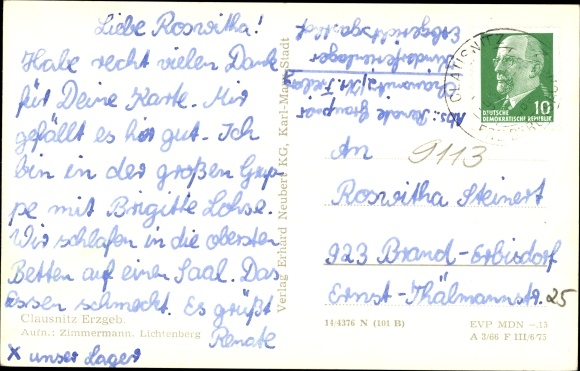 Liebe Roswitha!
Habe recht vielen Dank
für Deine Karte. Mir
gefällt es hier gut. Ich
bin in der großen Grup-
pe mit Brigitte Lohse.
Wir schlafen in die obersten
Betten auf einen Saal. Das
Essen schmeckt. Es grüßt
Renate
x unser Lager
Clausnitz Erzgeb.
Aufn.: Zimmermann, Lichtenberg
Verlag Erhard Neubert KG, Karl-Marx-Stadt
Abs.: Renate
Kinderferienlager
Erbgerichtsgasthof
CLAUSNITZ
10
DEUTSCHE
DEMOKRATISCHE REPUBLIK
An
9113
Roswitha Steinert
923 Brand-Erbisdorf
Ernst-Thälmannstr. 25
14/4376 N (101 B)
EVP MDN -.15
A 3/66 F III/6/75